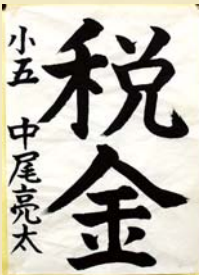 税金
小五 中尾亮太